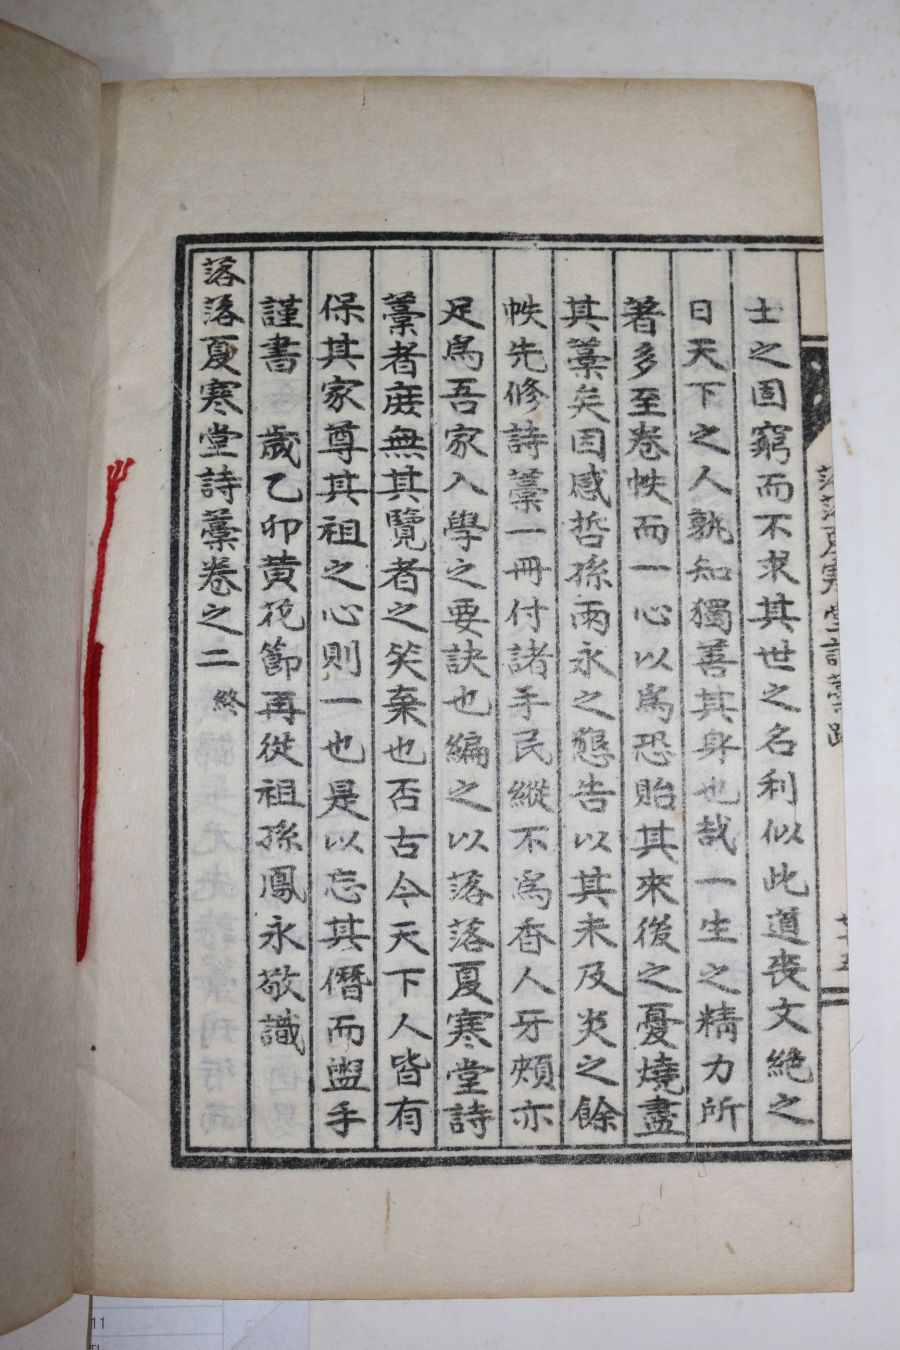 士之固窮而不求其世之名利似此道喪文絶之
日天下之人孰知獨善其身也哉一生之精力所
著多至卷帙而一心以爲恐貽其來後之憂燒盡
其藁矣因感哲孫雨永之懇告以其未及炎之餘
帙先修詩藁一冊付諸手民縱不爲香人牙頰亦
足爲吾家入學之要訣也編之以落落夏寒堂詩
藁者庶無其覽者之笑棄也否古今天下人皆有
保其家尊其祖之心則一也是以忘其僭而盥手
謹書 歲乙卯黃花節再從祖孫鳳永敬識
落落夏寒堂詩藁卷之二 終
落落夏寒堂詩藁跋
11